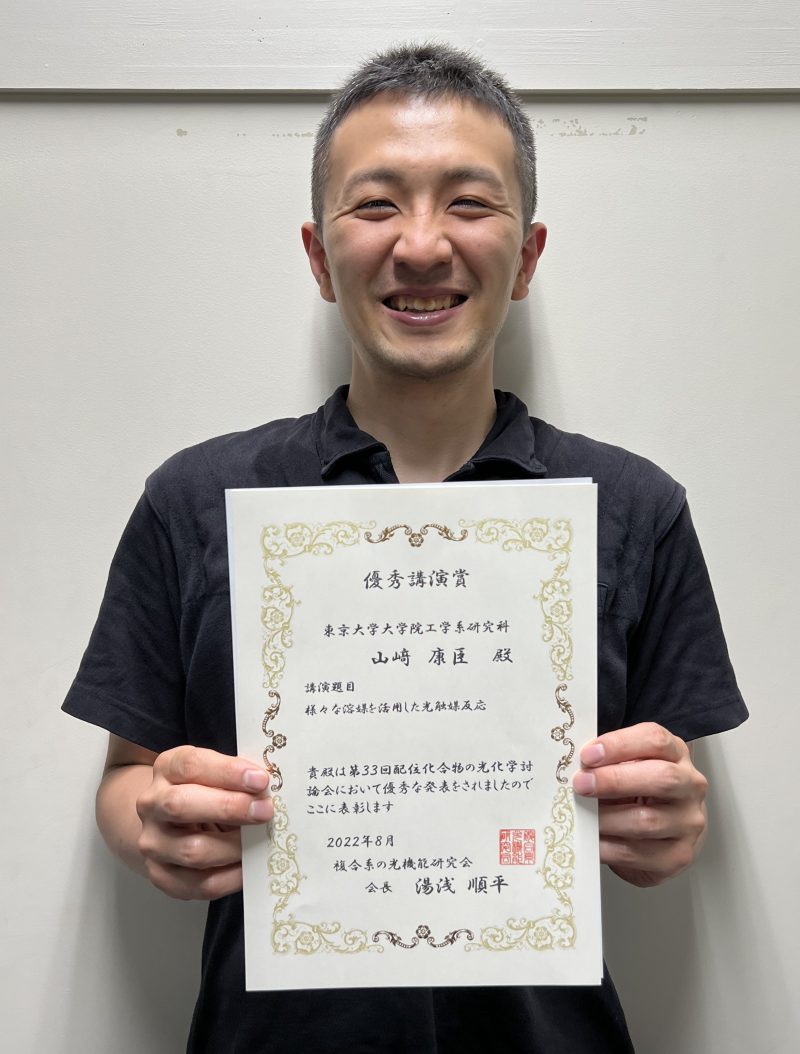 優秀講演賞
東京大学大学院工学系研究科
山﨑 康臣 殿
講演題目
様々な溶媒を活用した光触媒反応
貴殿は第33回配位化合物の光化学討
論会において優秀な発表をされましたので
ここに表彰します
2022年8月
複合系の光機能研究会
会長 湯浅 順平